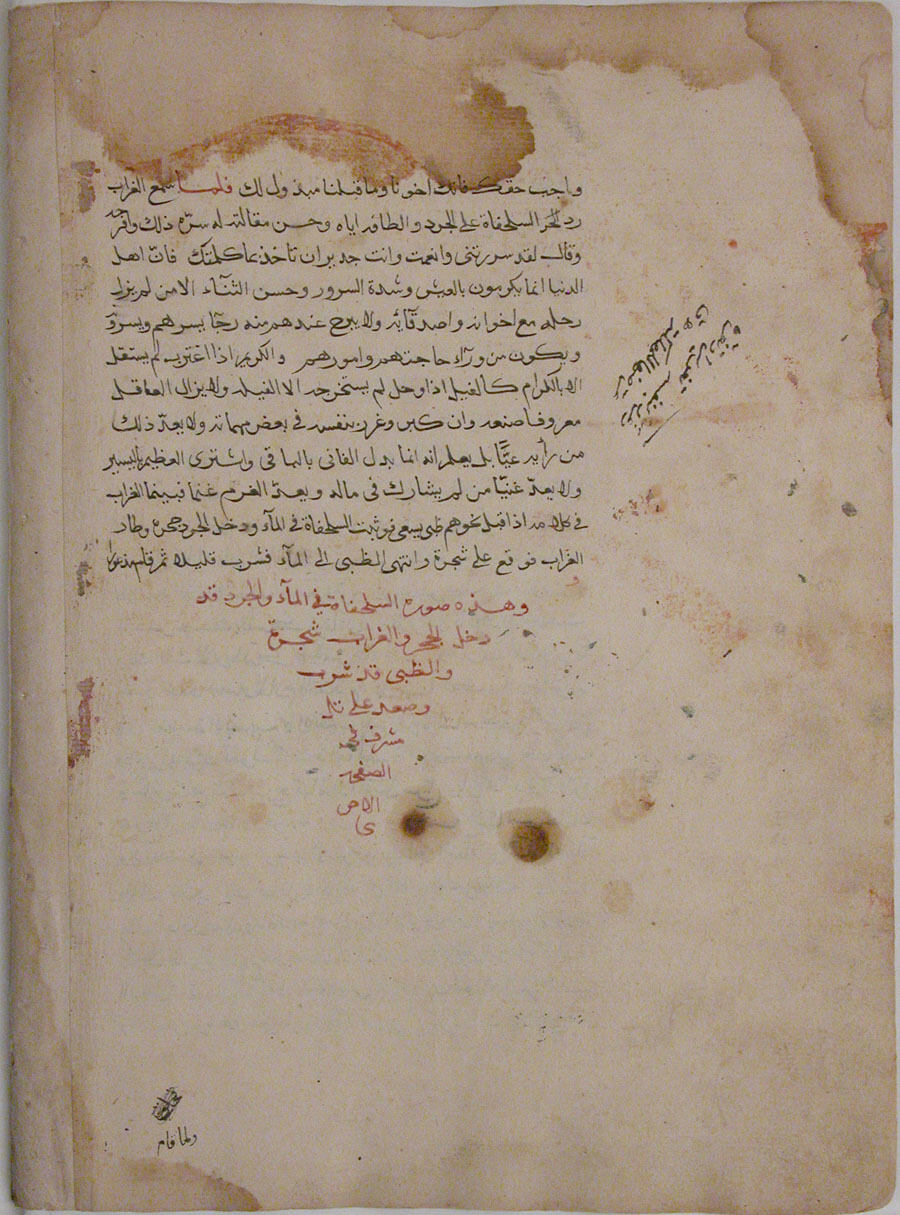 واجب حقك فانك اخونا وما قبلنا مبذول لك فلما سمع الغراب
رد السلحفاة على الجرد والطافه اياه وحسن مقالته له سره ذلك وافرحه
وقال لقد سررتنى وانعمت وانت جديران تاخذ بما كلمتك فان اهل
الدنيا انما يكرمون بالعيش وشدة السرور وحسن الثنآء الامن لم يزل
رحله مع اخوانه واصدقآيه ولا يبرح عندهم منه رجا يسرهم ويسروه
ويكون من ورآء حاجتهم وامورهم والكريم اذا اغترب لم يستقل
الا بالكرام كالفيل اذا وحل لم يستخرجه الا الفيله ولا يزال العاقل
معروفا صنعه وان كبر وغرر بنفسه في بعض مهماته ولا يعد ذلك
من رأيه عيًّا بل يعلم انه انما بدل الفانى بالباقى واشترى العظيم باليسير
ولا يعد غنيًّا من لم يشارك في ماله ويعد الغرم غنما فبينما الغراب
في كلامه اذ اقبل نحوهم ظبى يسعى فوثبت السلحفاة في المآء ودخل الجرد جحرة وطار
الغراب فوقع على شجرة وانتهى الظبى الى المآء فشرب قليلا ثم قام مذعورا
وهذه صورة السلحفاة في المآء والجرد قد
دخل الجحر والغراب شجرة
والظبى قد شرب
وصعد على تل
مشرف في
الصفحه
الاخر
ى
ولما قام